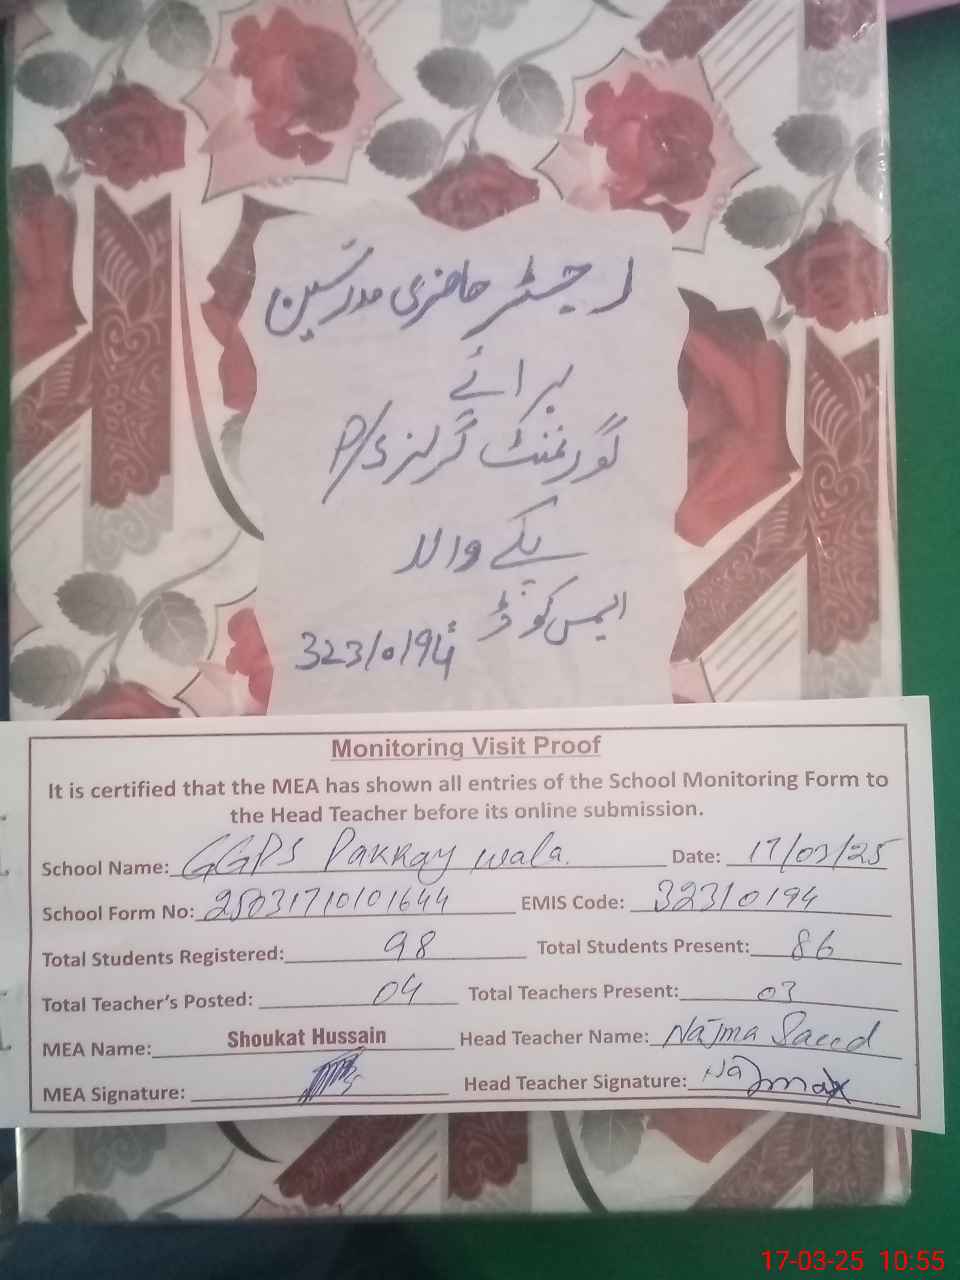 رجسٹر حاضری مدرسین
برائے
گورنمنٹ گرلز P/S
پکے والا
ایمس کوڈ 32310194
Monitoring Visit Proof
It is certified that the MEA has shown all entries of the School Monitoring Form to
the Head Teacher before its online submission.
School Name: GGPS Pakkay wala. Date: 17/03/25
School Form No: 25031710101644 EMIS Code: 32310194
Total Students Registered: 98 Total Students Present: 86
Total Teacher's Posted: 04 Total Teachers Present: 03
MEA Name: Shoukat Hussain Head Teacher Name: Najma Saeed
MEA Signature: Head Teacher Signature: Najma
17-03-25 10:55